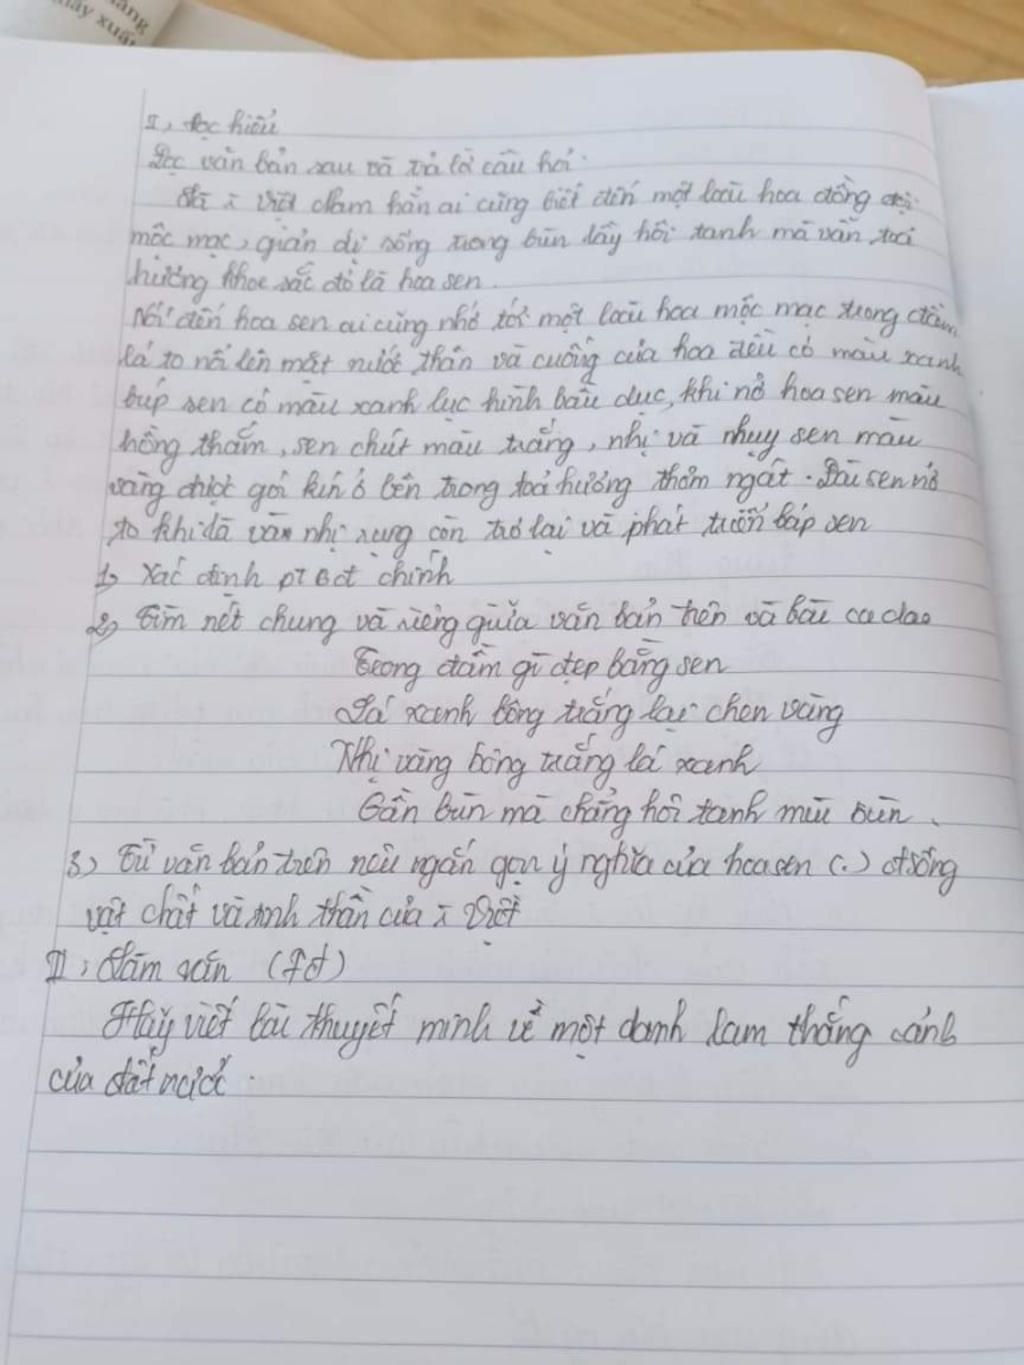 ăng
này xuất
I, đọc hiểu
Đọc văn bản sau và trả lời câu hỏi.
Đã là Việt Nam hẳn ai cũng biết đến một loài hoa đồng nội
mộc mạc, giản dị sống trong bùn lầy hôi tanh mà vẫn toả
hương khoe sắc đó là hoa sen.
Nói đến hoa sen ai cũng nhớ tới một loài hoa mộc mạc trong đầm
lá to nổi lên mặt nước thân và cuống của hoa đều có màu xanh
búp sen có màu xanh lục hình bầu dục, khi nở hoa sen màu
hồng thắm, sen chút màu trắng, nhị và nhuỵ sen màu
vàng được gói kín ở bên trong toả hương thơm ngát. Đài sen nở
to khi đã vàn nhị rụng còn trở lại và phát triển bắp sen
1, Xác định ptbđt chính
2, Tìm nét chung và riêng giữa văn bản trên và bài ca dao
Trong đầm gì đẹp bằng sen
Lá xanh bông trắng lại chen vàng
Nhị vàng bông trắng lá xanh
Gần bùn mà chẳng hôi tanh mùi bùn.
3) Từ văn bản trên nêu ngắn gọn ý nghĩa của hoa sen (.) đsống
vật chất và tinh thần của Việt
II, Làm văn (7đ)
Hãy viết bài thuyết minh về một danh lam thắng cảnh
của đất nước.